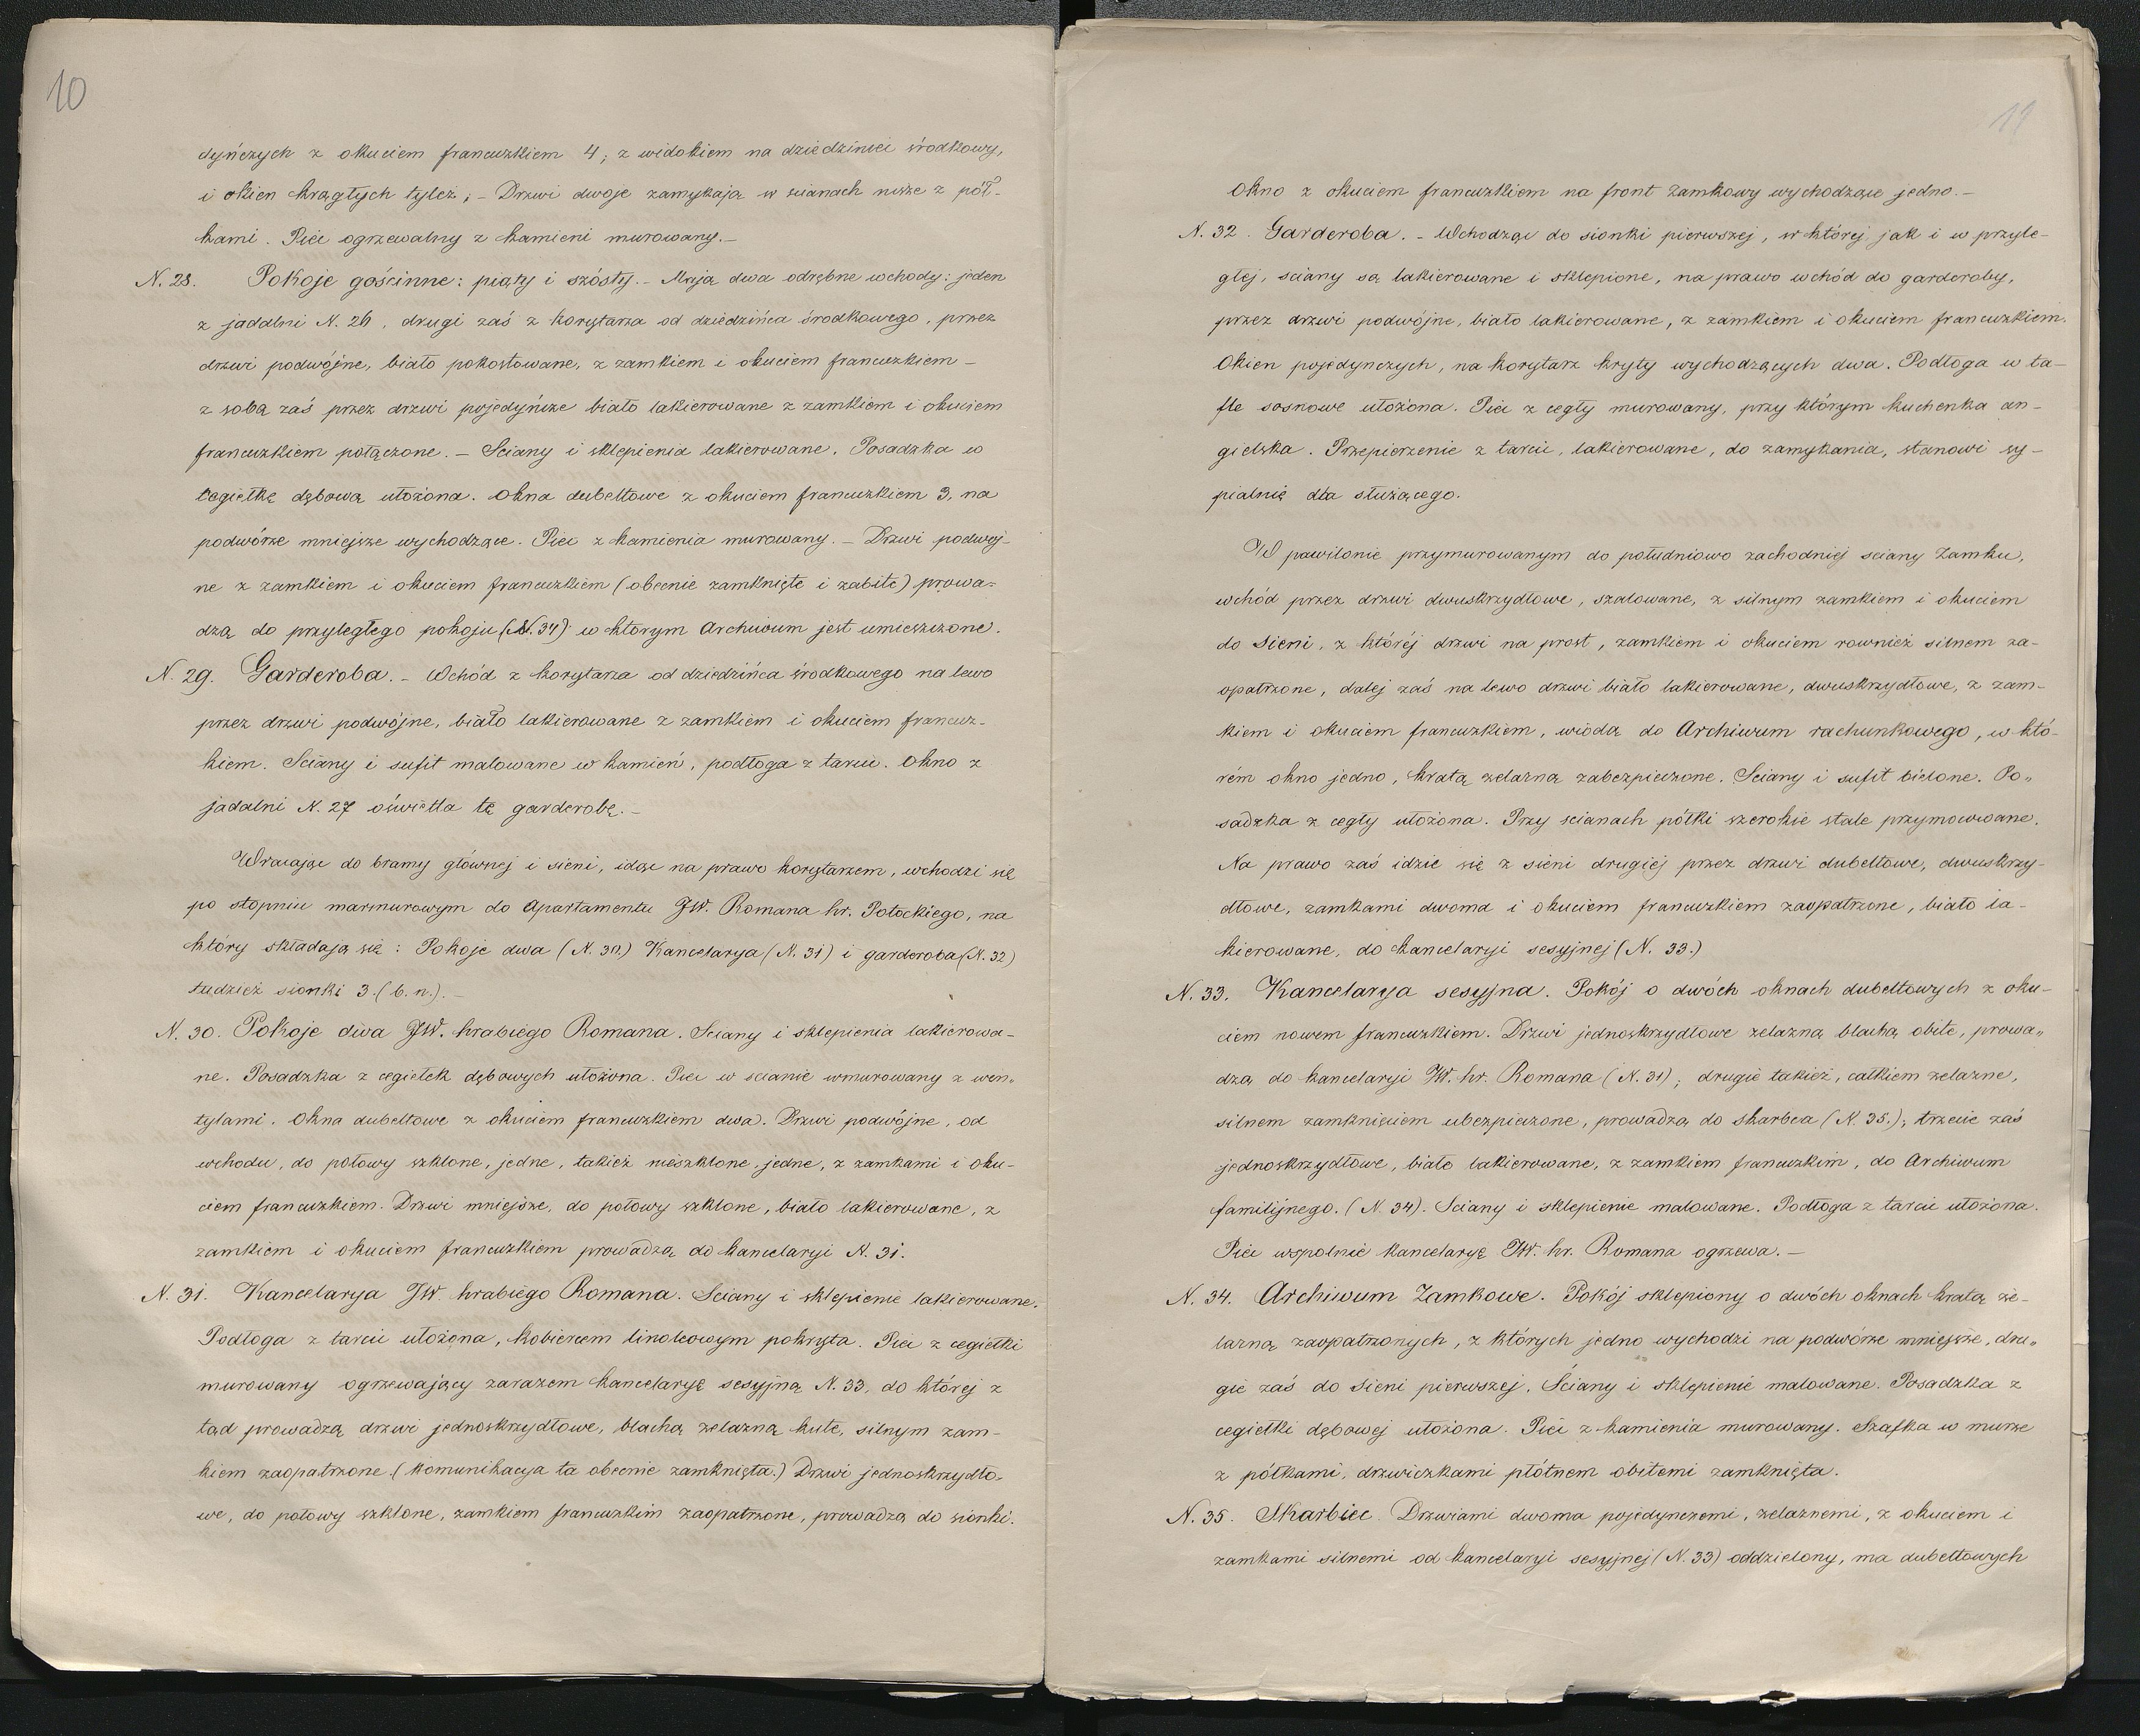 10
dyńczych z okuciem francuzkiem 4; z widokiem na dziedziniec środkowy,
i okien krągłych tyleż; – Drzwi dwoje zamykają w scianach nisze z pół-
kami. Piec ogrzewalny z kamieni murowany. –
N. 28. Pokoje gościnne: piąty i szósty. – Mają dwa odrębne wchody: jeden
z jadalni N. 26, drugi zaś z korytarza od dziedzińca środkowego, przez
drzwi podwójne, biało pokostowane, z zamkiem i okuciem francuzkiem –
z sobą zaś przez drzwi pojedyńcze biało lakierowane z zamkiem i okuciem
francuzkiem połączone. – Sciany i sklepienia lakierowane. Posadzka w
cegiełkę dębową ułożona. Okna dubeltowe z okuciem francuzkiem 3, na
podwórze mniejsze wychodzące. Piec z kamienia murowany. – Drzwi podwoj-
ne z zamkiem i okuciem francuzkiem (obecnie zamknięte i zabite) prowa-
dzą do przyległego pokoju (N. 34) w którym Archiwum jest umieszczone.
N. 29. Garderoba. – Wchód z korytarza od dziedzińca środkowego na lewo
przez drzwi podwójne, biało lakierowane z zamkiem i okuciem francuz-
kiem. Sciany i sufit malowane w kamień, podłoga z tarcic. Okno z
jadalni N. 27 oświetla tę garderobę. –
Wracając do bramy głównej i sieni, idąc na prawo korytarzem, wchodzi się
po stopniu marmurowym do Apartamentu JW. Romana hr. Potockiego, na
który składają się: Pokoje dwa (N. 30.) Kancelarya (N. 31) i garderoba (N. 32)
tudzież sionki 3. (b. n.). –
N. 30. Pokoje dwa JW. hrabiego Romana. Sciany i sklepienia lakierowa-
ne. Posadzka z cegiełek dębowych ułożona. Piec w scianie wmurowany z wen-
tylami. Okna dubeltowe z okuciem francuzkiem dwa. Drzwi podwójne, od
wchodu, do połowy szklone, jedne, takież nieszklone, jedne, z zamkami i oku-
ciem francuzkiem. Drzwi mniejsze, do połowy szklone, biało lakierowane, z
zamkiem i okuciem francuzkiem prowadzą do kancelaryi N. 31.
N. 31. Kancelarya JW. hrabiego Romana. Sciany i sklepienie lakierowane.
Podłoga z tarcic ułożona, kobiercem linoleowym pokryta. Piec z cegiełki
murowany ogrzewający zarazem kancelaryę sesyjną N. 33, do której z
tąd prowadzą drzwi jednoskrzydłowe, blachą żelazną kute, silnym zam-
kiem zaopatrzone. (komunikacya ta obecnie zamknięta.) Drzwi jednoskrzydło-
we, do połowy szklone, zamkiem francuzkim zaopatrzone, prowadzą do sionki.
11
Okno z okuciem francuzkiem na front Zamkowy wychodzące jedno. –
N. 32. Garderoba. – Wchodząc do sionki pierwszej, w której, jak i w przyle-
głej, sciany są lakierowane i sklepione, na prawo wchód do garderoby,
przez drzwi podwójne, biało lakierowane, z zamkiem i okuciem francuzkiem.
Okien pojedynczych, na korytarz kryty wychodzących dwa. Podłoga w ta-
fle sosnowe ułożona. Piec z cegły murowany, przy którym kuchenka an-
gielska. Przepierzenie z tarcic, lakierowane, do zamykania, stanowi sy-
pialnię dla służącego.
W pawilonie przymurowanym do południowo zachodniej sciany Zamku,
wchód przez drzwi dwuskrzydłowe, szalowane, z silnym zamkiem i okuciem
do Sieni, z której drzwi na prost, zamkiem i okuciem rownież silnem za-
opatrzone, dalej zaś na lewo drzwi biało lakierowane, dwuskrzydłowe, z zam-
kiem i okuciem francuzkiem, wiodą do Archiwum rachunkowego, w któ-
rém okno jedno, kratą żelazną zabezpieczone. Sciany i sufit bielone. Po-
sadzka z cegły ułożona. Przy scianach półki szerokie stale przymocowane.
Na prawo zaś idzie się z sieni drugiej przez drzwi dubeltowe, dwuskrzy-
dłowe, zamkami dwoma i okuciem francuzkiem zaopatrzone, biało la-
kierowane, do kancelaryi sesyjnej (N. 33.)
N. 33. Kancelarya sesyjna. Pokój o dwóch oknach dubeltowych z oku-
ciem nowem francuzkiem. Drzwi jednoskrzydłowe żelazną blachą obite, prowa-
dzą do kancelaryi JW. hr. Romana (N. 31), drugie takież, całkiem żelazne,
silnem zamknięciem ubezpieczone, prowadzą do skarbca (N. 35.); trzecie zaś
jednoskrzydłowe, biało lakierowane, z zamkiem francuzkim, do Archiwum
familijnego. (N. 34). Sciany i sklepienie malowane. Podłoga z tarcic ułożona.
Piec wspolnie kancelaryę JW. hr. Romana ogrzewa. –
N. 34. Archiwum Zamkowe. Pokój sklepiony o dwóch oknach kratą że-
lazną zaopatrzonych, z których jedno wychodzi na podwórze mniejsze, dru-
gie zaś do Sieni pierwszej. Ściany i sklepienie malowane. Posadzka z
cegiełki dębowej ułożona. Piec z kamienia murowany. Szafka w murze
z półkami, drzwiczkami płótnem obitemi zamknięta.
N. 35. Skarbiec. Drzwiami dwoma pojedynczemi, żelaznemi, z okuciem i
zamkami silnemi od kancelaryi sesyjnej (N. 33) oddzielony, ma dubeltowych